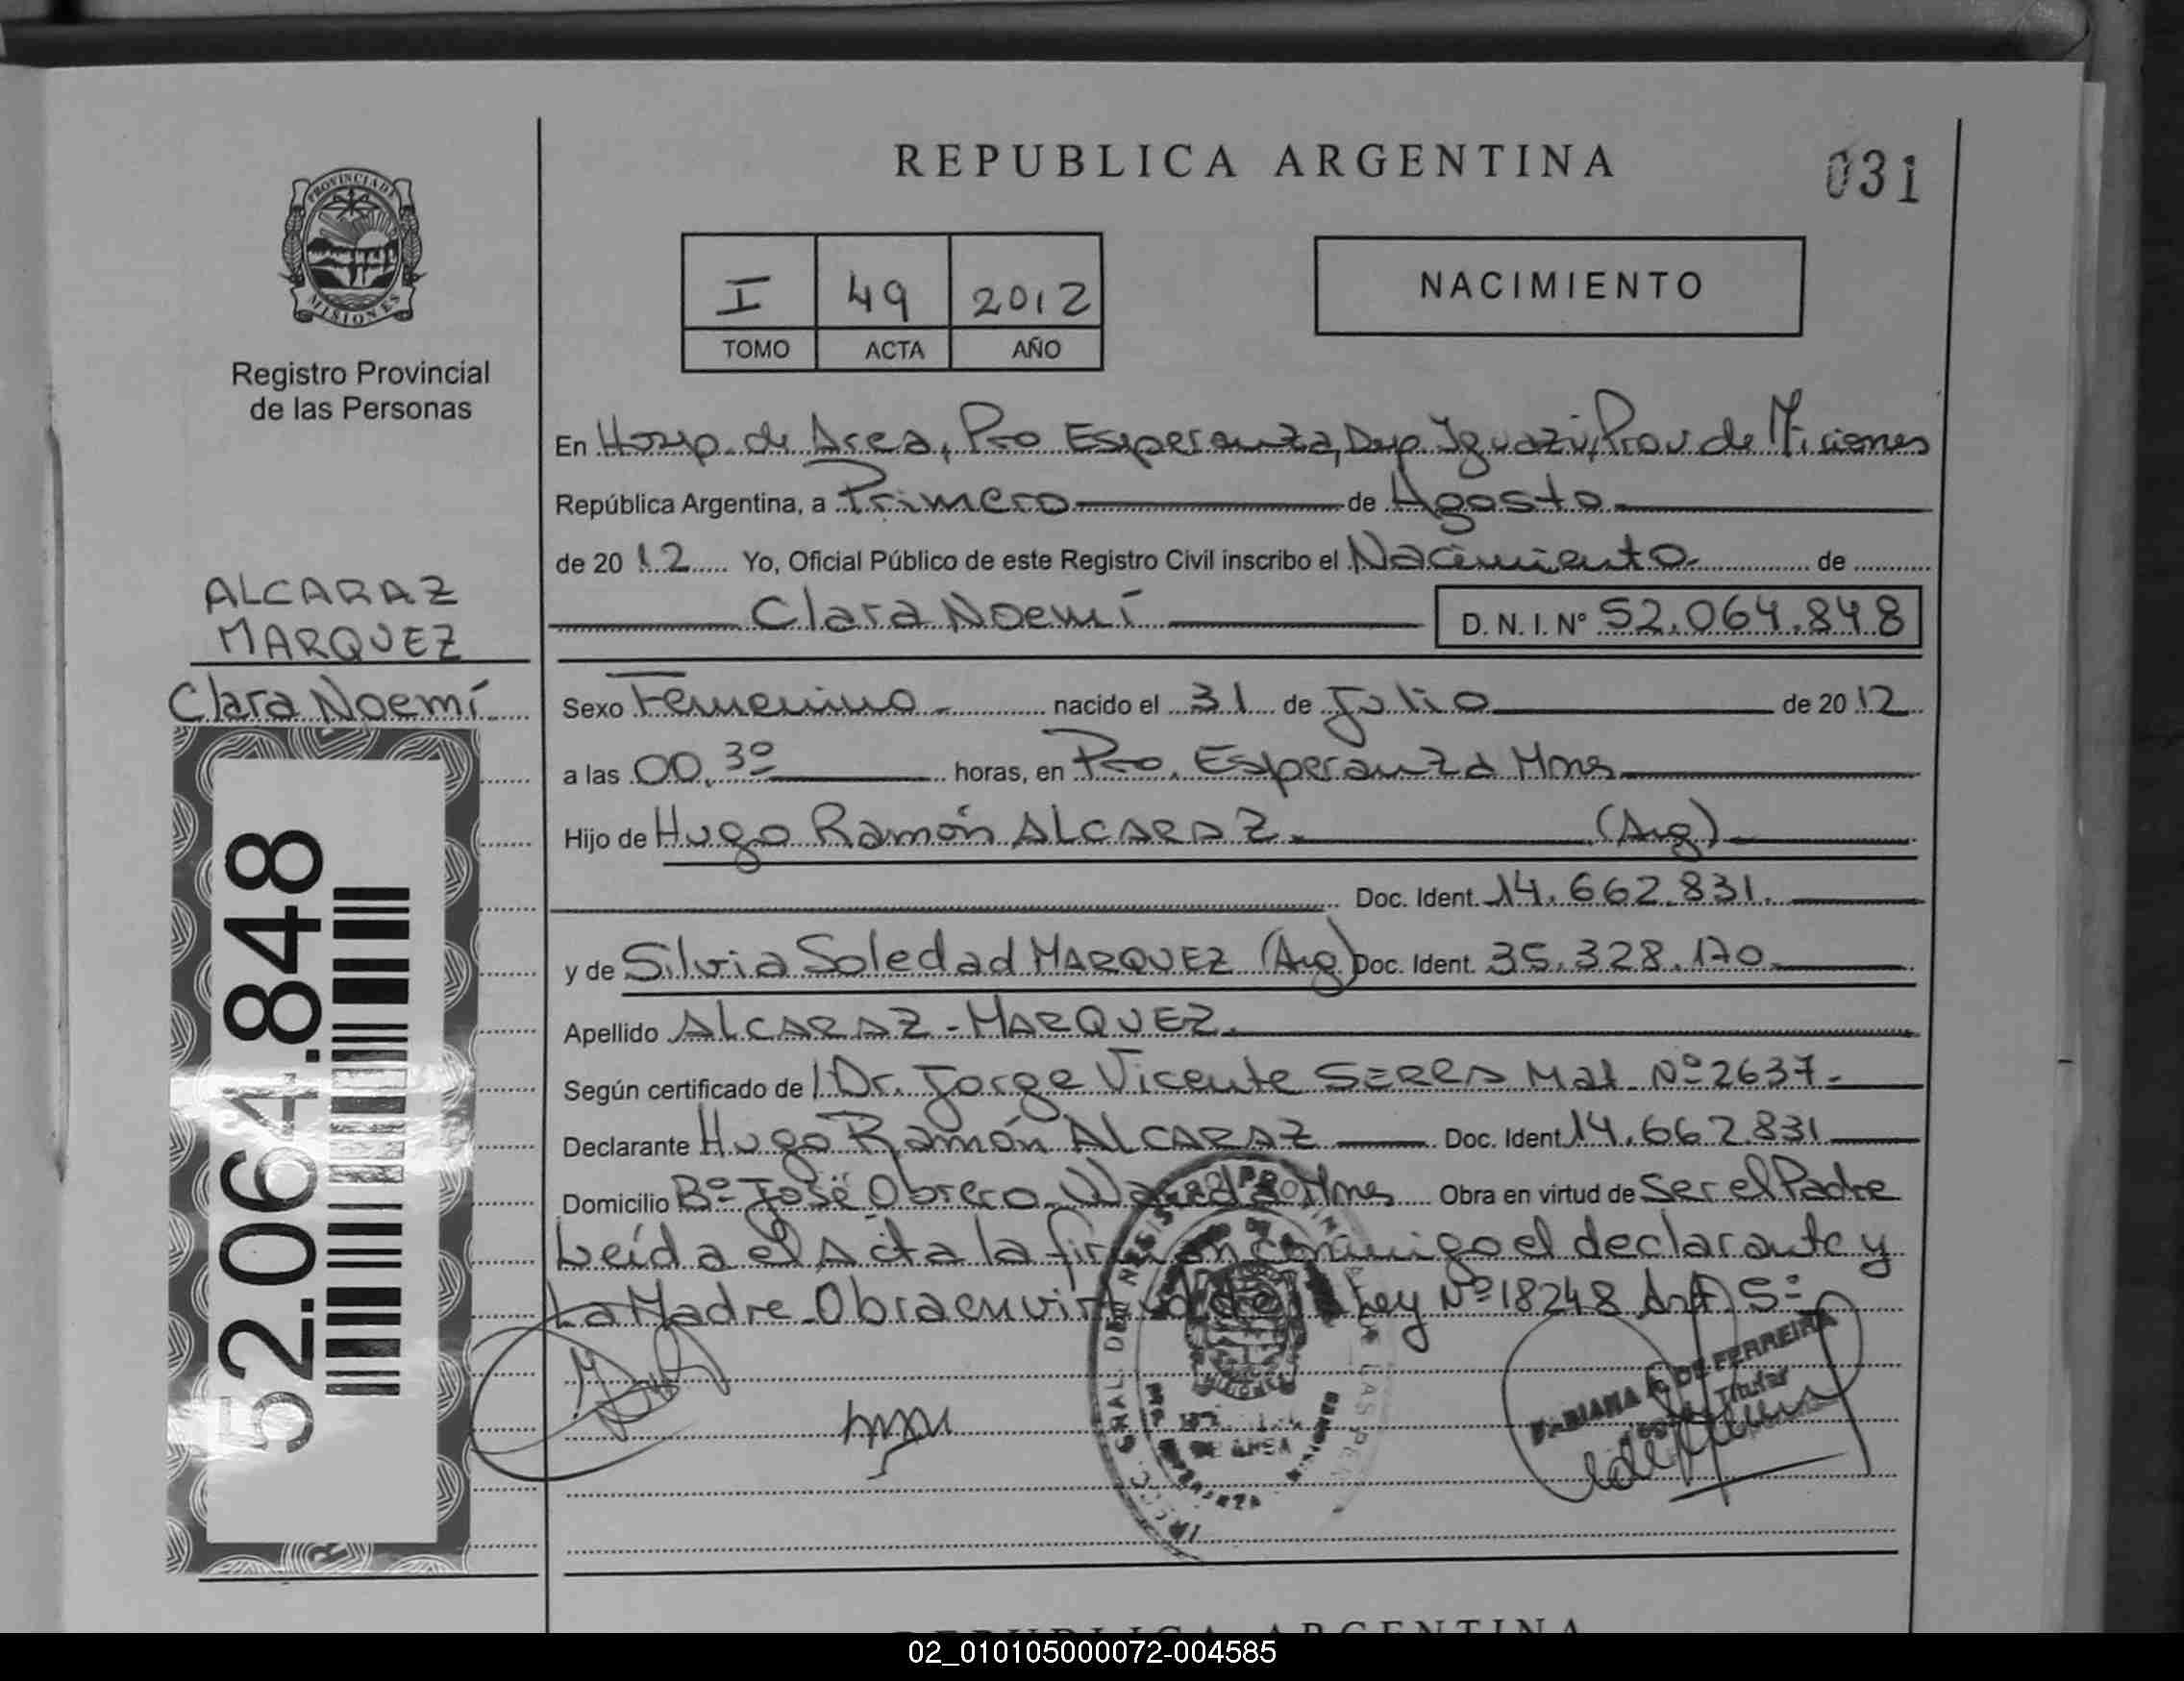 REPUBLICA ARGENTINA
031
PROVINCIA DE
MISIONES
Registro Provincial
de las Personas
I 49 2012
TOMO ACTA AÑO
NACIMIENTO
En Hosp. de Area, Pto Esperanza, Dep. Iguazú, Prov de Misiones
República Argentina, a Primero de Agosto
de 2012 Yo, Oficial Público de este Registro Civil inscribo el Nacimiento. de
Clara Noemí D. N. I. Nº 52.064.848
ALCARAZ
MARQUEZ
Clara Noemí
52.064.848
Sexo Femenino - nacido el 31 de Julio de 2012
a las 00,30 horas, en Pto. Esperanza Mnes
Hijo de Hugo Ramón ALCARAZ. (Arg)
Doc. Ident. 14.662.831.
y de Silvia Soledad MARQUEZ (Arg) Doc. Ident. 35.328.170
Apellido ALCARAZ - MARQUEZ.
Según certificado de Dr. Jorge Vicente Mat Nº 2637.
Declarante Hugo Ramón ALCARAZ Doc. Ident 14.662.831
Domicilio Bº José Obrero Mnes Obra en virtud de Ser el Padre
Leída el Acta la firman conmigo el declarante y
La Madre. Obra en virtud de Ley Nº 18248 Art. 5º
DE FERREIRA
Titular
REPUBLICA ARGENTINA
02_010105000072-004585